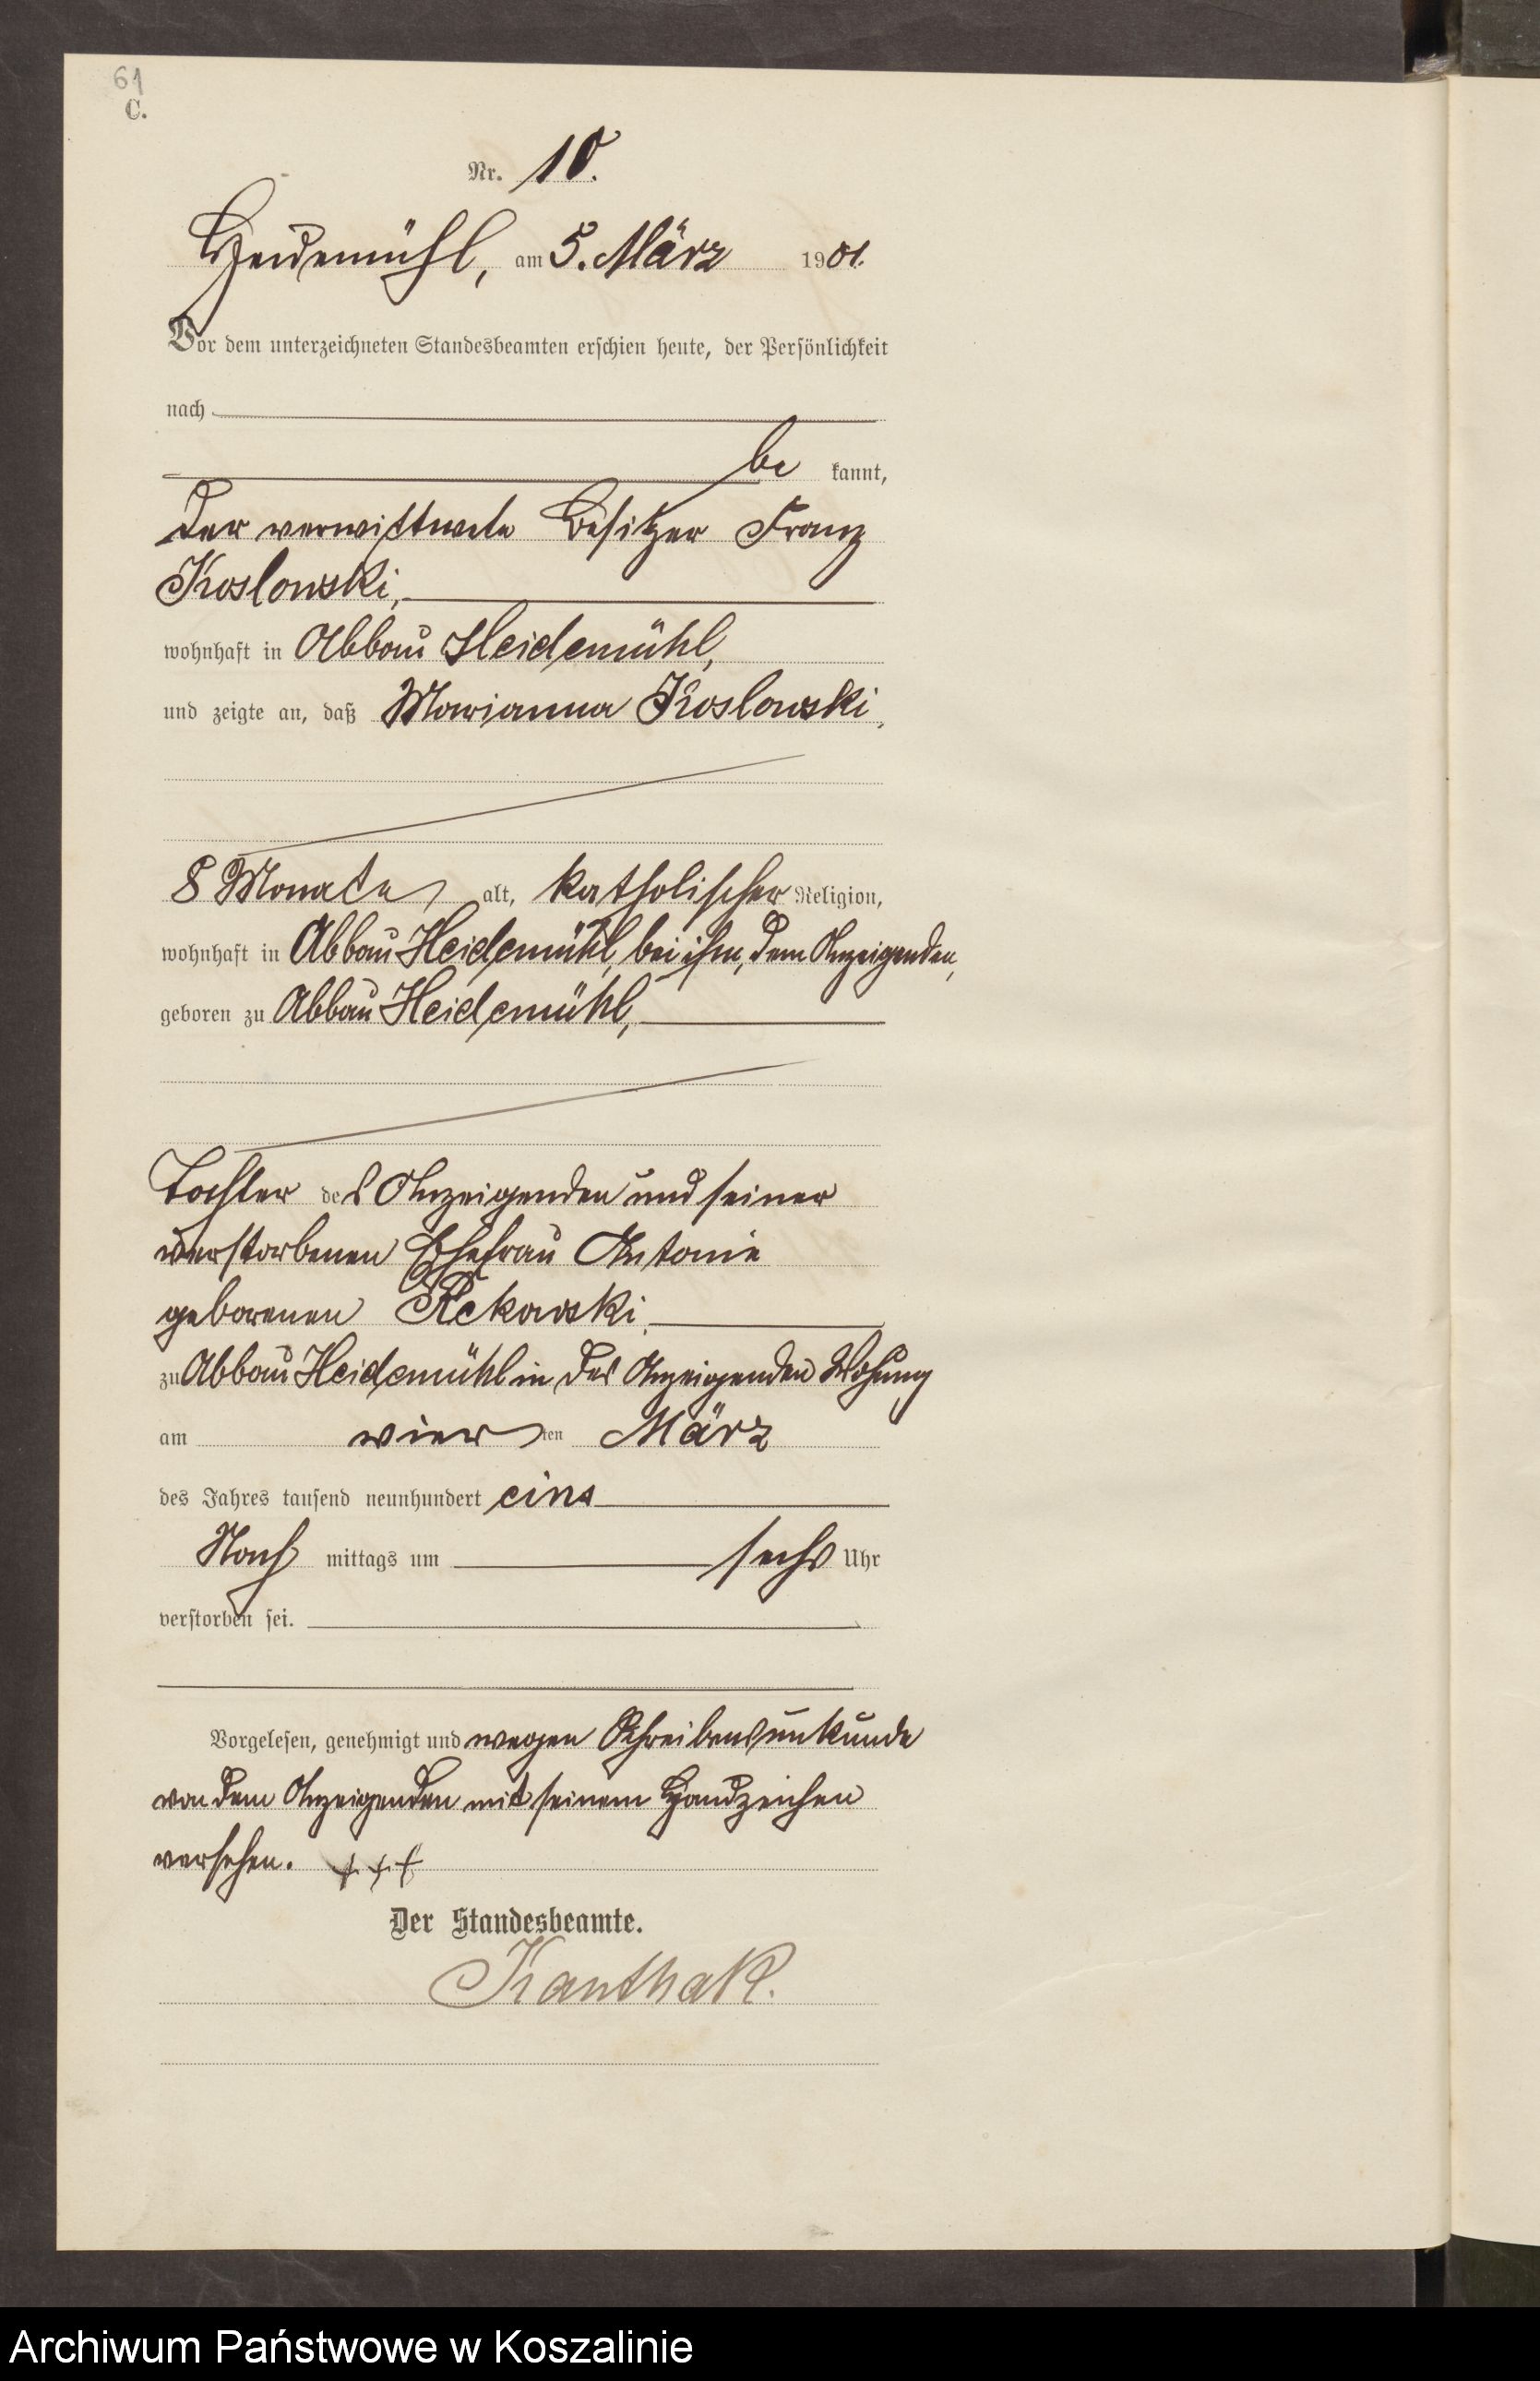 61
C.
Nr. 10.
Heidemühl, am 5. März 1901.
Vor dem unterzeichneten Standesbeamten erschien heute, der Persönlichkeit
nach
be kannt,
der verwittwete Besitzer Franz
Koslowski,
wohnhaft in Abbau Heidemühl,
und zeigte an, daß Marianna Koslowski,
8 Monate alt, katholischer Religion,
wohnhaft in Abbau Heidemühl, bei ihm, dem Anzeigenden,
geboren zu Abbau Heidemühl,
Tochter des Anzeigenden und seiner
verstorbenen Ehefrau Antonie
geborenen Rekowski,
zu Abbau Heidemühl in des Anzeigenden Wohung
am vier ten März
des Jahres tausend neunhundert eins
Nach mittags um sechs Uhr
verstorben sei.
Vorgelesen, genehmigt und wegen Schreibensunkunde
von dem Anzeigenden mit seinem Handzeichen
versehen. +++
Der Standesbeamte.
Kanthak.
Archiwum Państwowe w Koszalinie